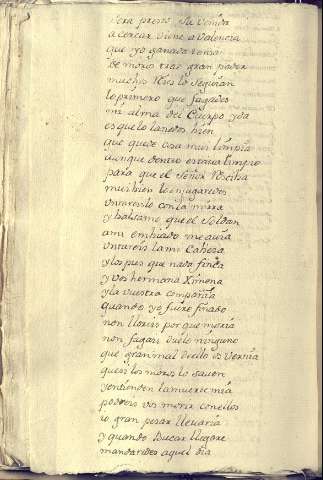 sera presto su venida
a cercar viene a Valencia
que yo ganada tenia
de moros trae gran poder
muchos Reies lo seguian
lo primero que fagades
mi alma del cuerpo yda
es que lo lavedes bien
que quede cosa mui limpia
aunque dentro estava limpio
para que el Señor Resciba
mui bien le enjugaredes
untareislo con la mirra
y balsamo que el Soldan
a mi embiado me avia
untareis la mi Cabeza
y los pies que nada finca
y vos hermana Ximena
y la vuestra compañia
quando yo fuere finado
non lloreis por que moria
non fagais duelo ninguno
que gran mal dello os vernia
que si los moros lo saven
y entienden la muerte mia
podreis vos morir con ellos
io gran pesar llevaria
y quando Bucar llegare
mandaredes aquel dia